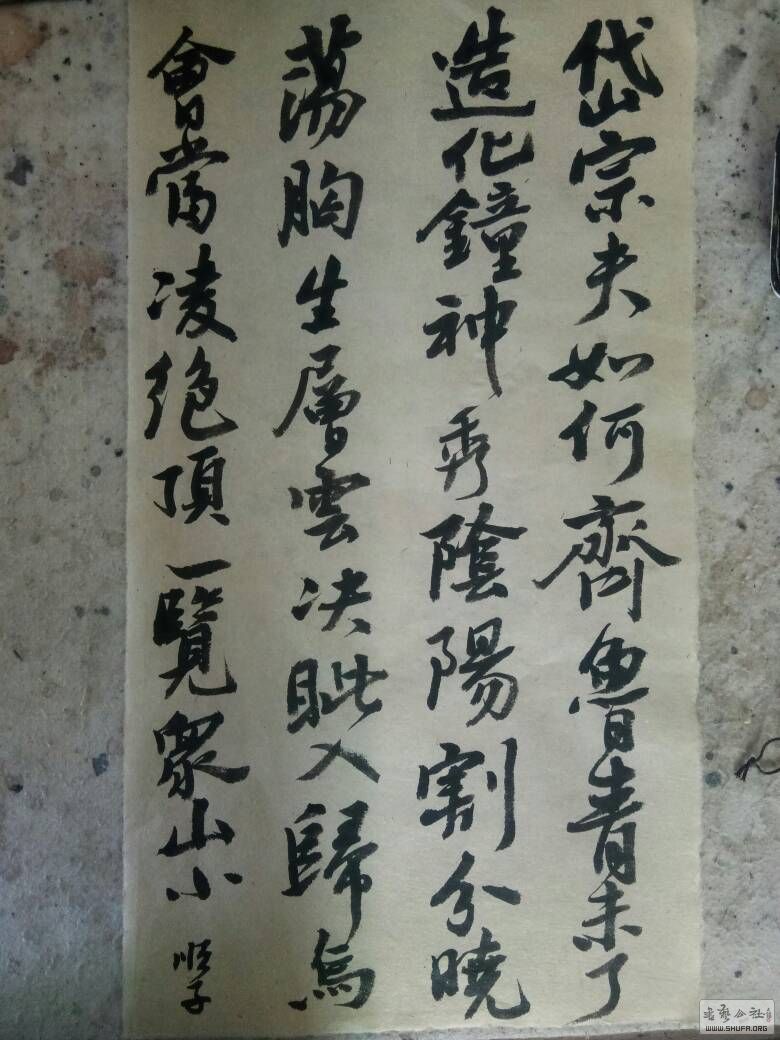 岱宗夫如何齊魯青未了
造化鐘神秀陰陽割分曉
蕩胸生層雲決眥入歸鳥
會當凌絕頂一覽眾山小
順子
WWW.SHUFA.ORG